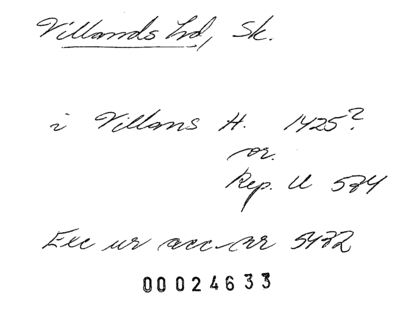 Villands hd, Sk.
i Villans H. 1425?
or.
Rep. U 524
Exc ur acc-nr 5422
00024633